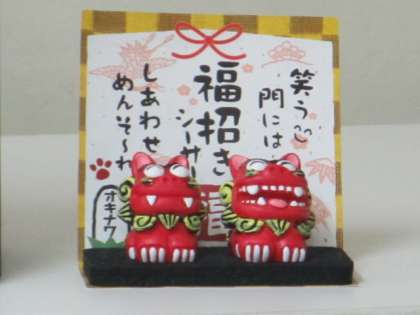 笑う
門には
福招き
シーサー
しあわせ
めんそ~れ
オキナワ